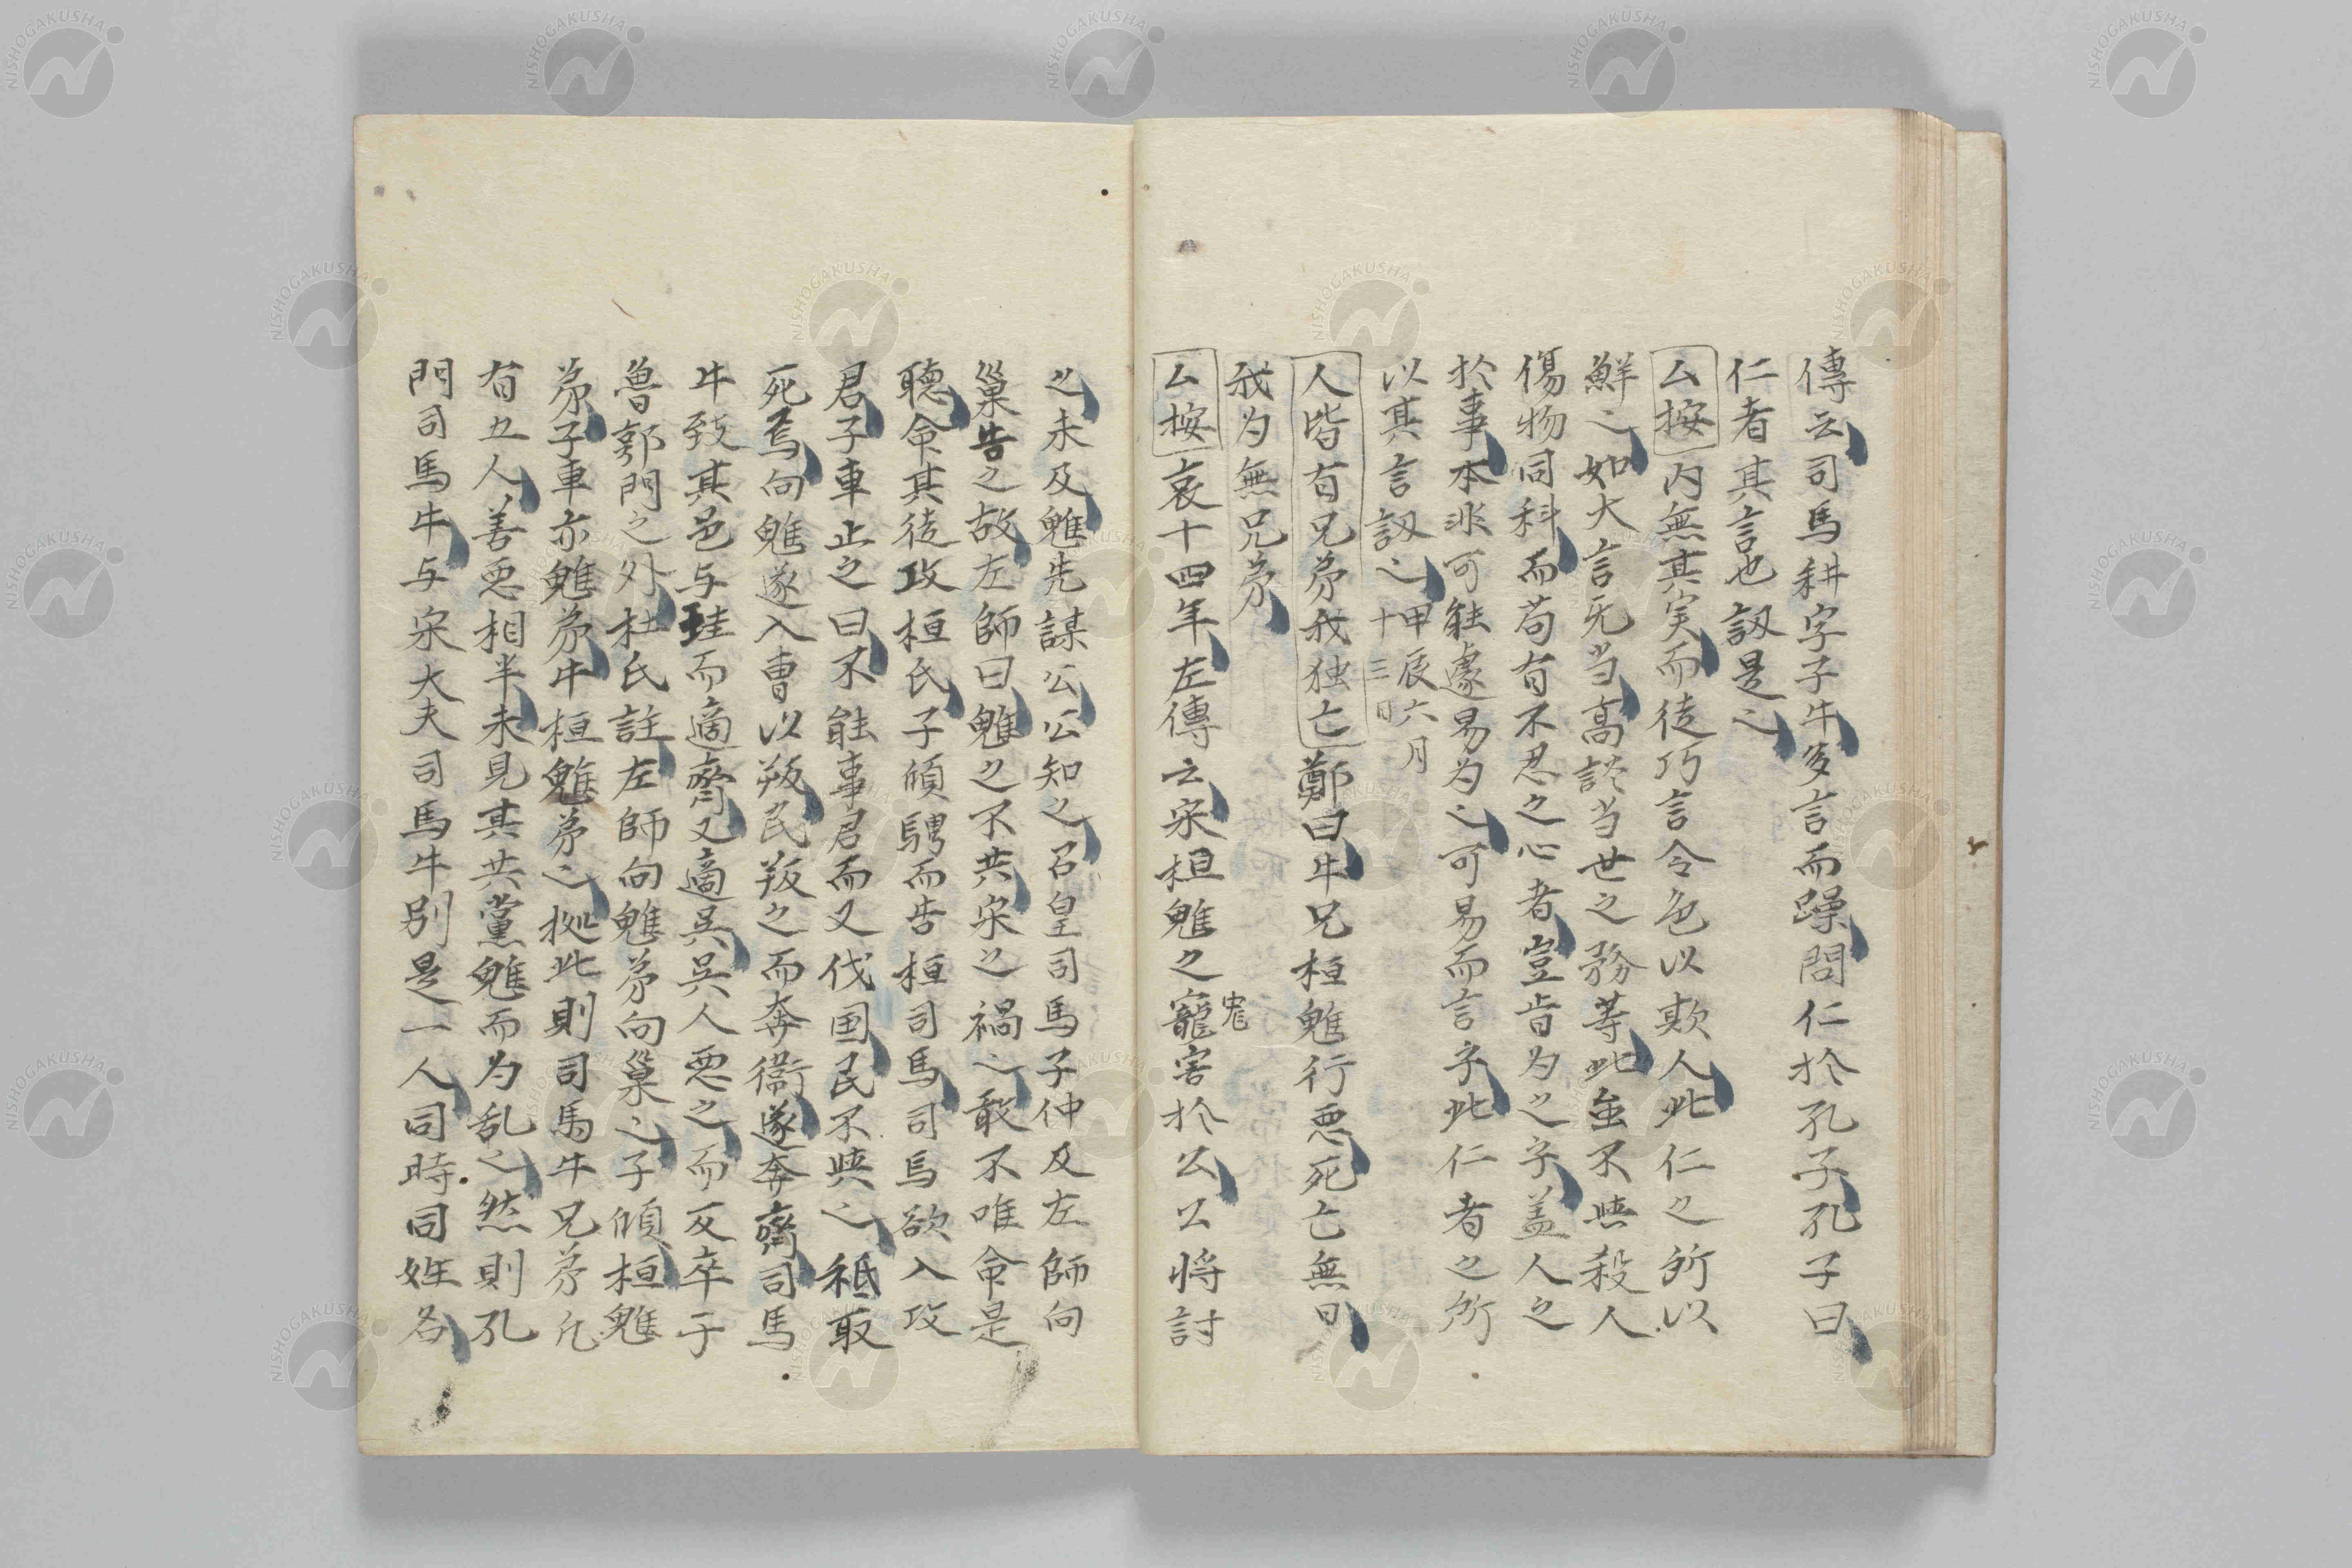 傳云司馬耕字子牛多言而躁問仁於孔子孔子曰
仁者其言也訒是之
厶按内無其実而徒巧言令色以欺人此仁之所以
鮮之如大言死当高談当世之務等此虽不與殺人
傷物同科而苟有不忍之心者豈肯为之乎盖人之
於事本非可能遽易为之可易而言乎此仁者之所
以其言訒之甲辰六月
十三日
人皆有兄弟我独亡鄭曰牛兄桓魋行悪死亡無日
我为無兄弟
厶按哀十四年左傳云宋桓魋之寵害於公公将討
之未及魋先謀公公知之召皇司馬子仲及左師向
巢告之故左師曰魋之不共宋之禍之敢不唯命是
聴命其徒攻桓氏子頎騁而告桓司馬司馬欲入攻
君子車止之曰不能事君而又伐国民不與之秪取
死焉向魋遂入曹以叛民叛之而奔衞遂奔齊司馬
牛致其邑与珪而適齊又適呉呉人悪之而反卒于
魯郭門之外杜氏註左師向魋弟向巢之子頎桓魋
弟子車亦魋弟牛桓魋弟之拠此則司馬牛兄弟凡
有五人善悪相半未見其共黨魋而为乱之然則孔
門司馬牛与宋大夫司馬牛別是一人同時同姓名